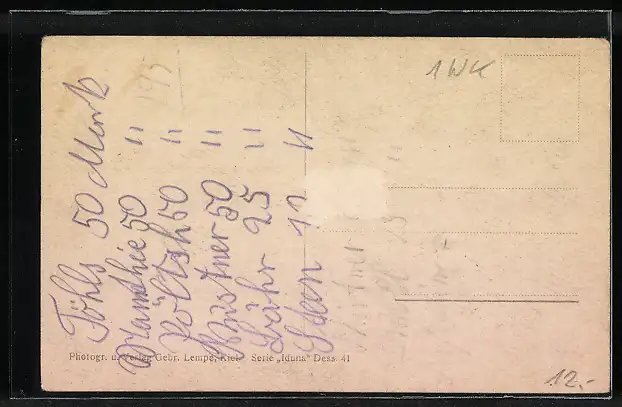 Föhls 50 Mark
Mamthie 50 "
Költsch 50 "
Wüstner 50 "
Lühr 25 "
Stein 12 "
1WK
Photogr. u. Verlag Gebr. Lempe, Kiel Serie „Iduna" Dess. 41
12.-